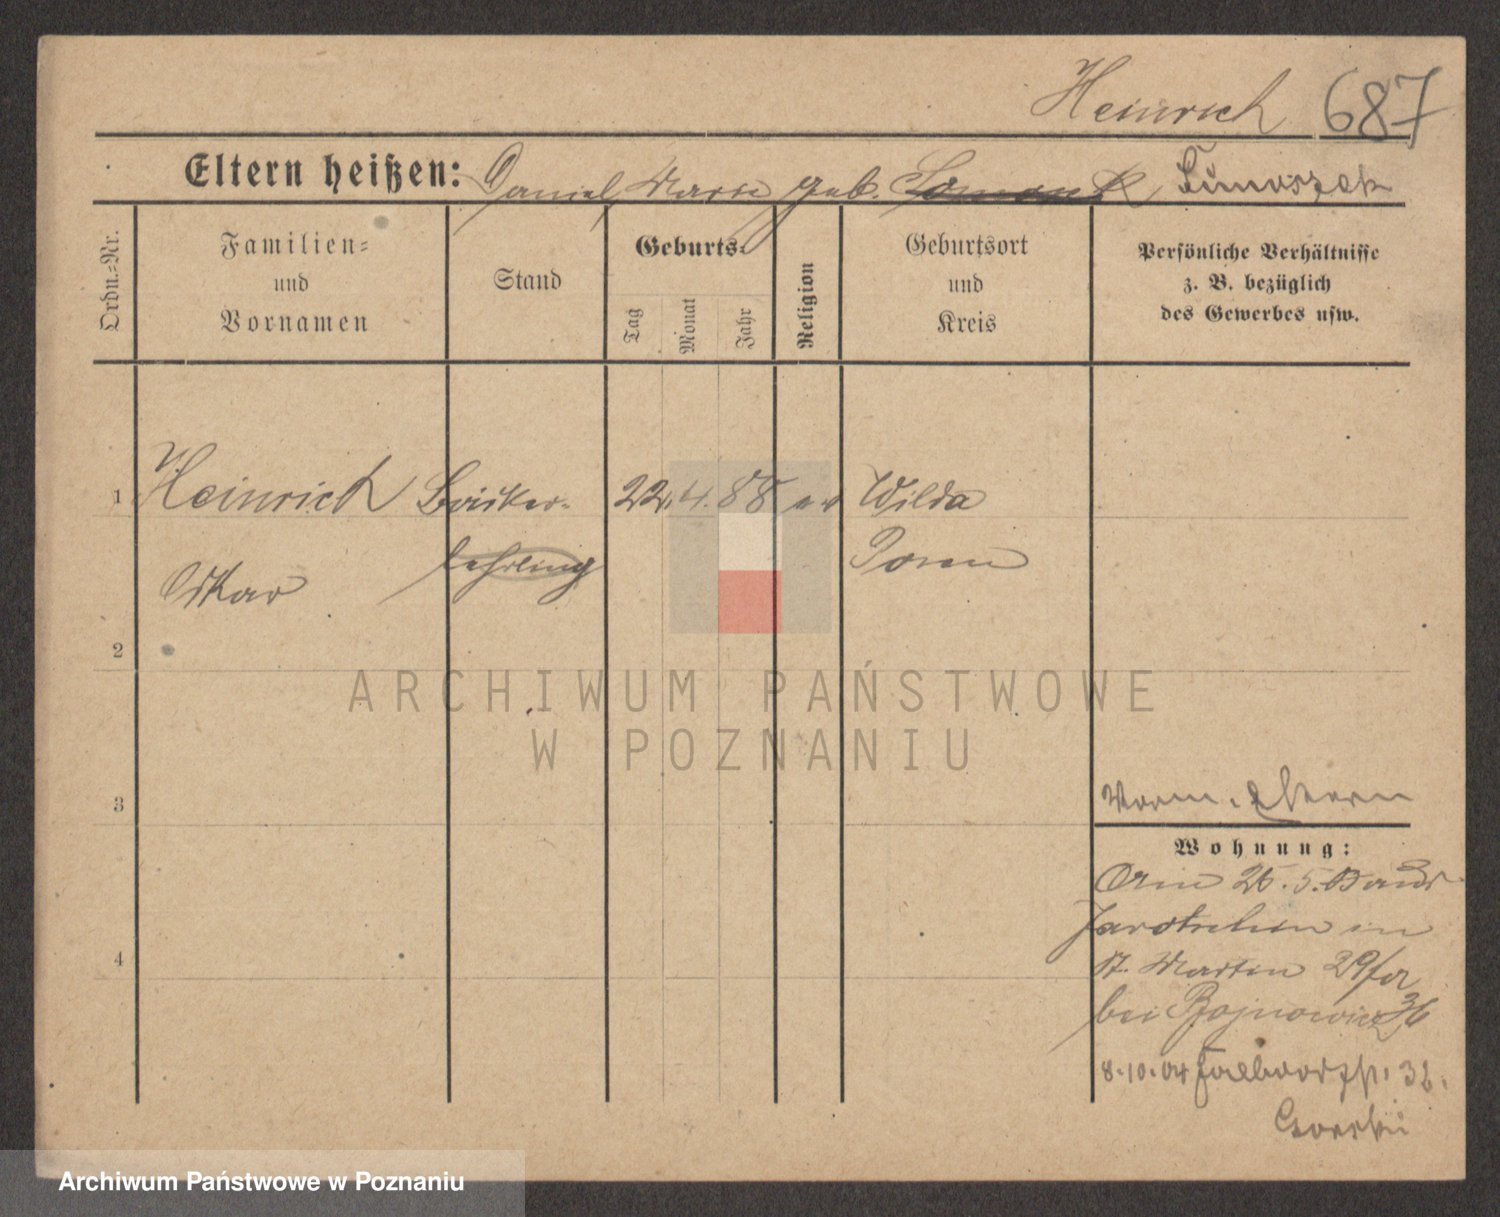 Heinrich 687
Eltern heißen: Daniel, Marie geb.
Ordn.=Nr.
Familien=
und
Vornamen
Stand
Geburts=
Tag
Monat
Jahr
Religion
Geburtsort
und
Kreis
Persönliche Verhältnisse
z. B. bezüglich
des Gewerbes usw.
1 Heinrich Bäcker- 22. 4. 88 ev Wilda
Oskar lehrling Posen
2
ARCHIWUM PAŃSTWOWE
W POZNANIU
3
Wohnung:
26. 5.
Jarotschin in
4 St. Martin 29
bei
8.10.04 32.
Gorski
Archiwum Państwowe w Poznaniu